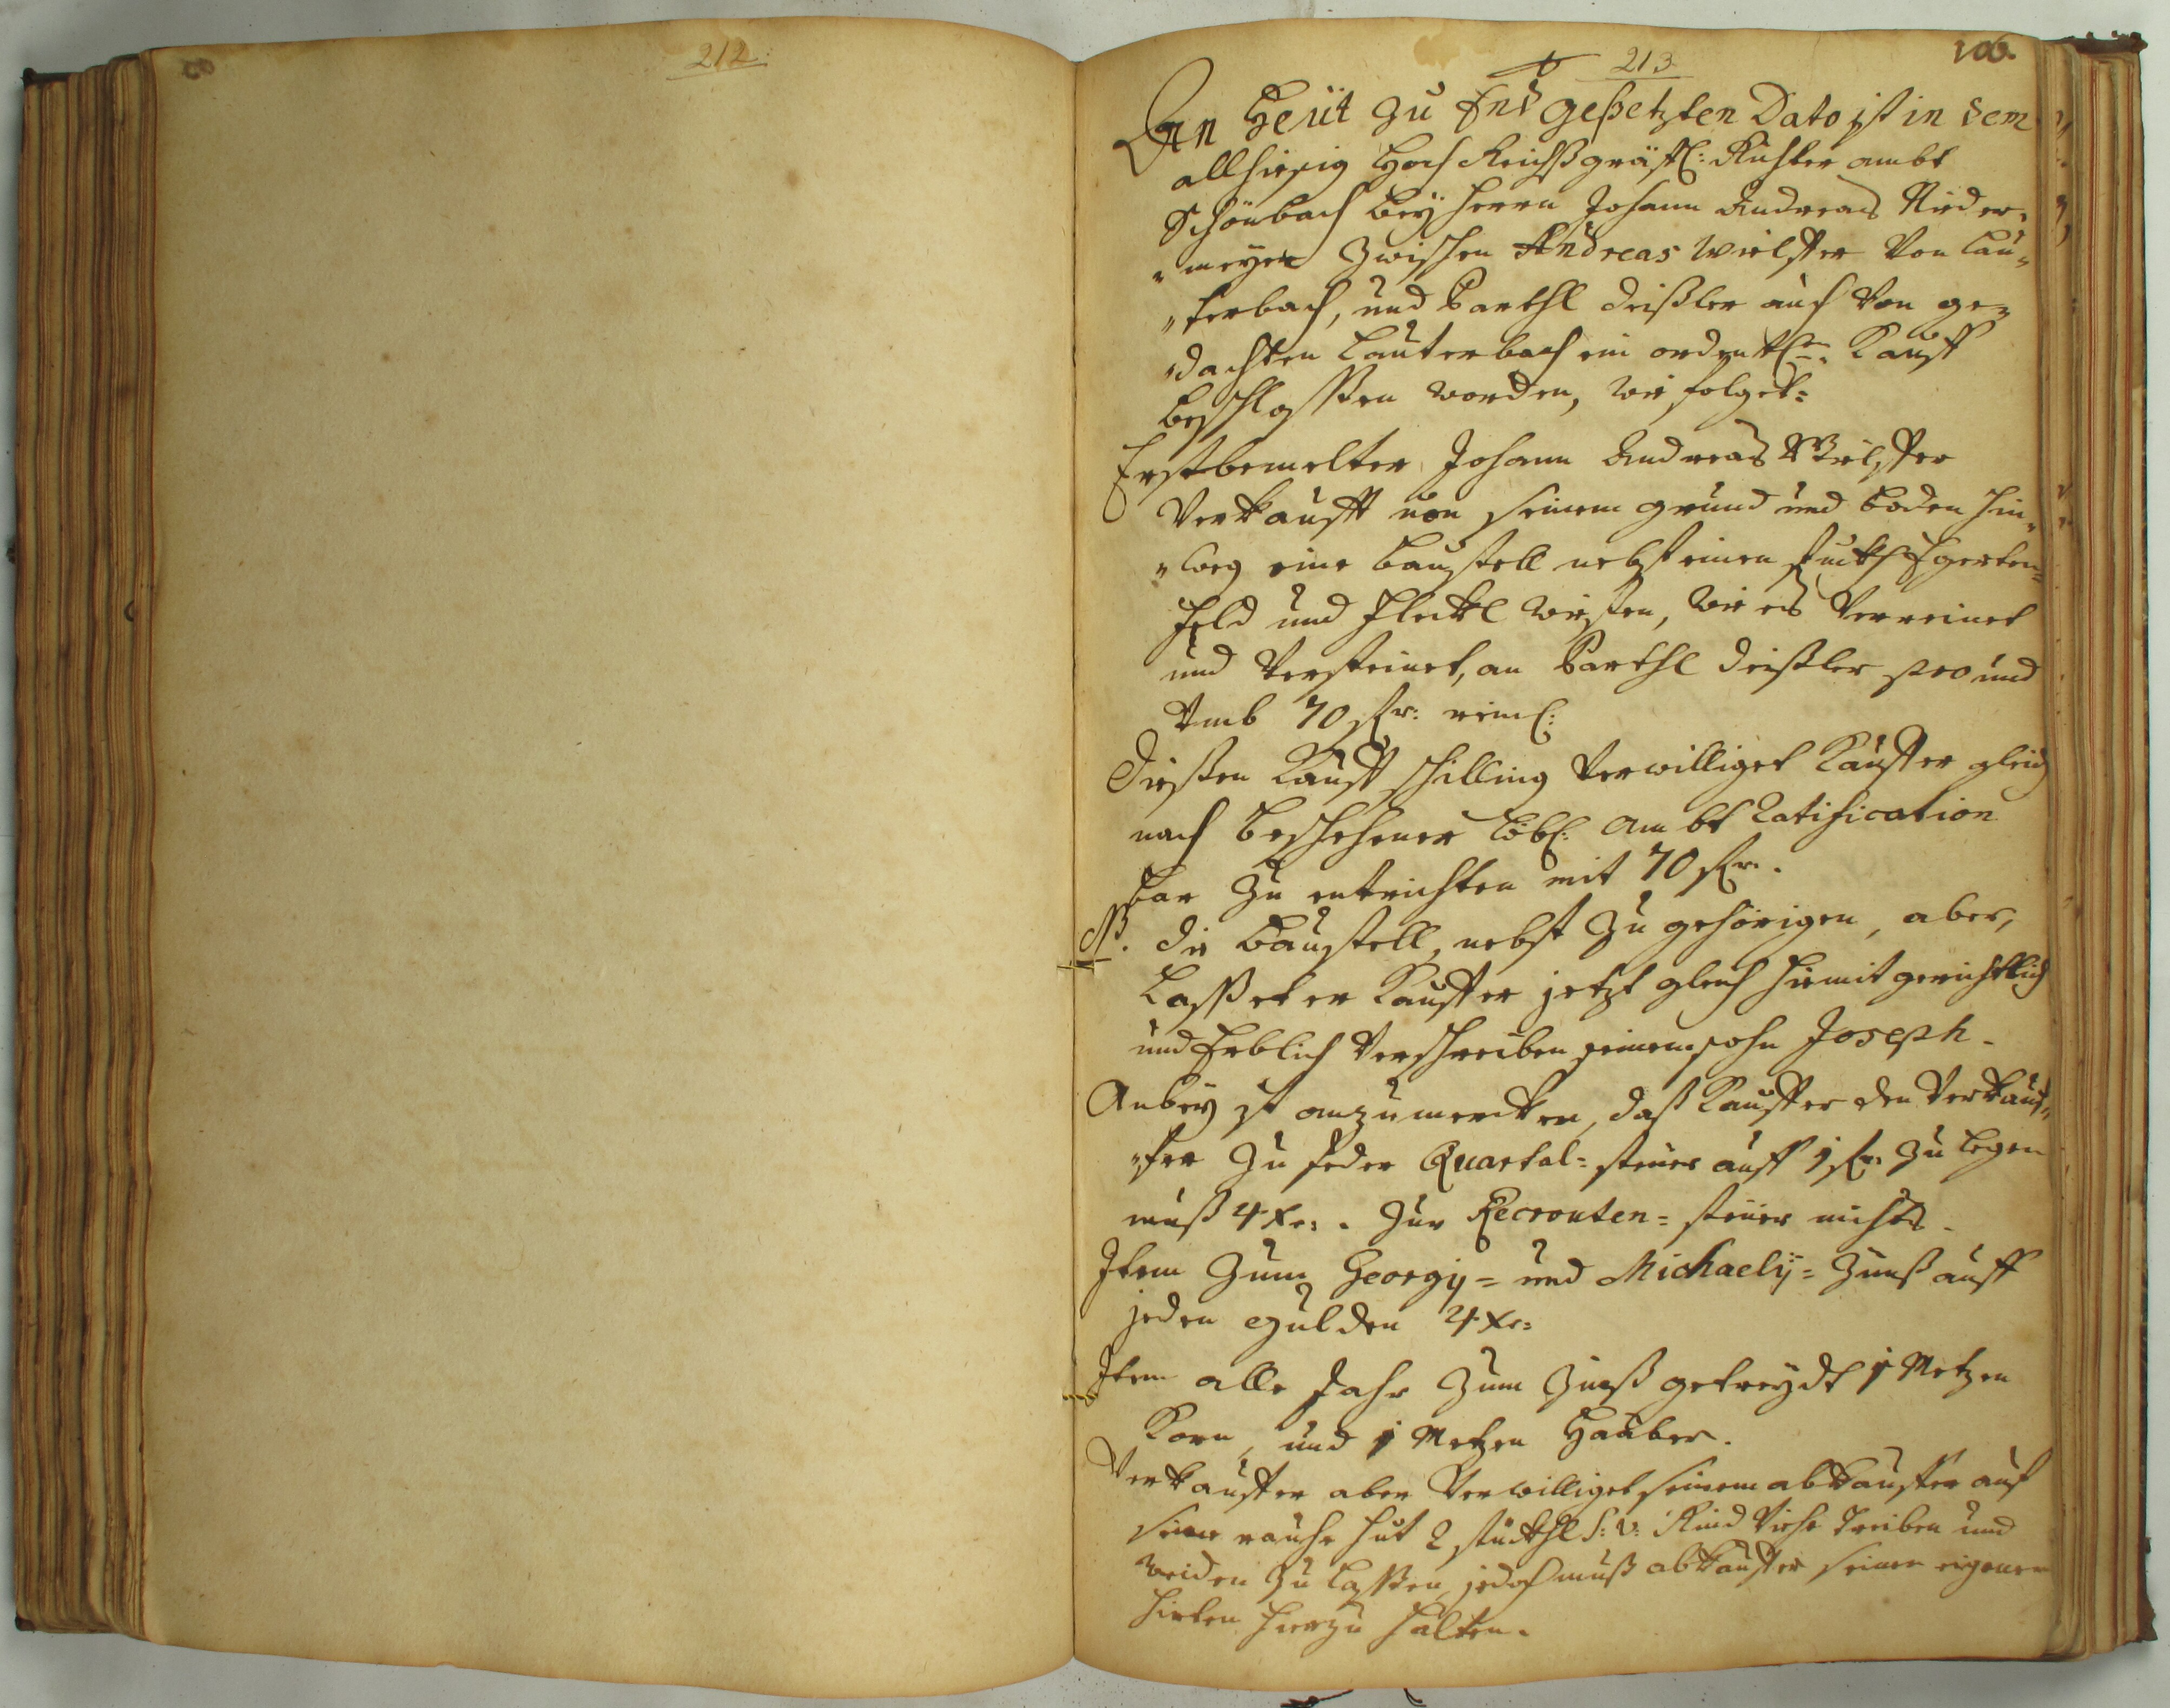 212.
213
106.
An Heüt zu End geßetzten Dato ist in dem
allhiesig Hoch Reichßgräfl: Richter ambt
Schönbach beÿ Herrn Johann Andreas Nieder„
„meÿer zwischen Andreas Wielfter von Lau„
„terbach, und Barthl Deißler auch von ge„
„dachten Lauterbach ein ordentl: Kauff
beschlossen worden, wie folget:
Erstbemelter Johann Andreas Wielfter
Verkaufft von seinem grund und boden hin„
„weg eine baustell nebst einen stuckh Egerten=
feld und fleckl wiesen, wie es verreinet
und Versteinet, an Barthl Deißler pro und
Vmb 70 fl: reinl:
Dießen Kauffschilling verwilliget Kauffer gleich
nach beschehener löbl: Ambt Ratification
bar zu entrichten mit 70 fl.
NB. Die baustell, nebst zu gehörigen, aber,
Lasset er Kauffer jetzt gleich hiemit gerichtlich
und Erblich verschreiben seinem sohn Joseph.
Anbeÿ ist anzumercken, daß Kauffer den Verkauf„
„fer zu jeder Quartal= steuer auff 1 fl: zu legen
muß 4 Xr: . zur Recrouten= steuer nichts.
Item zum Georgij= und Michaelij= Zinß auff
jeden Gulden 4 Xr:
Item alle Jahr zum Zinß getreÿdt 1 Metzen
Korn, und 1 Metzen Haaber.
Verkauffer aber verwilliget seinem abkauffer auf
seine rauhe hut 2 stückhl S: v: Rind Viehe treiben und
weiden zu lassen, jedoch muß abkauffer seinen eigenen
hirten hierzu halten.